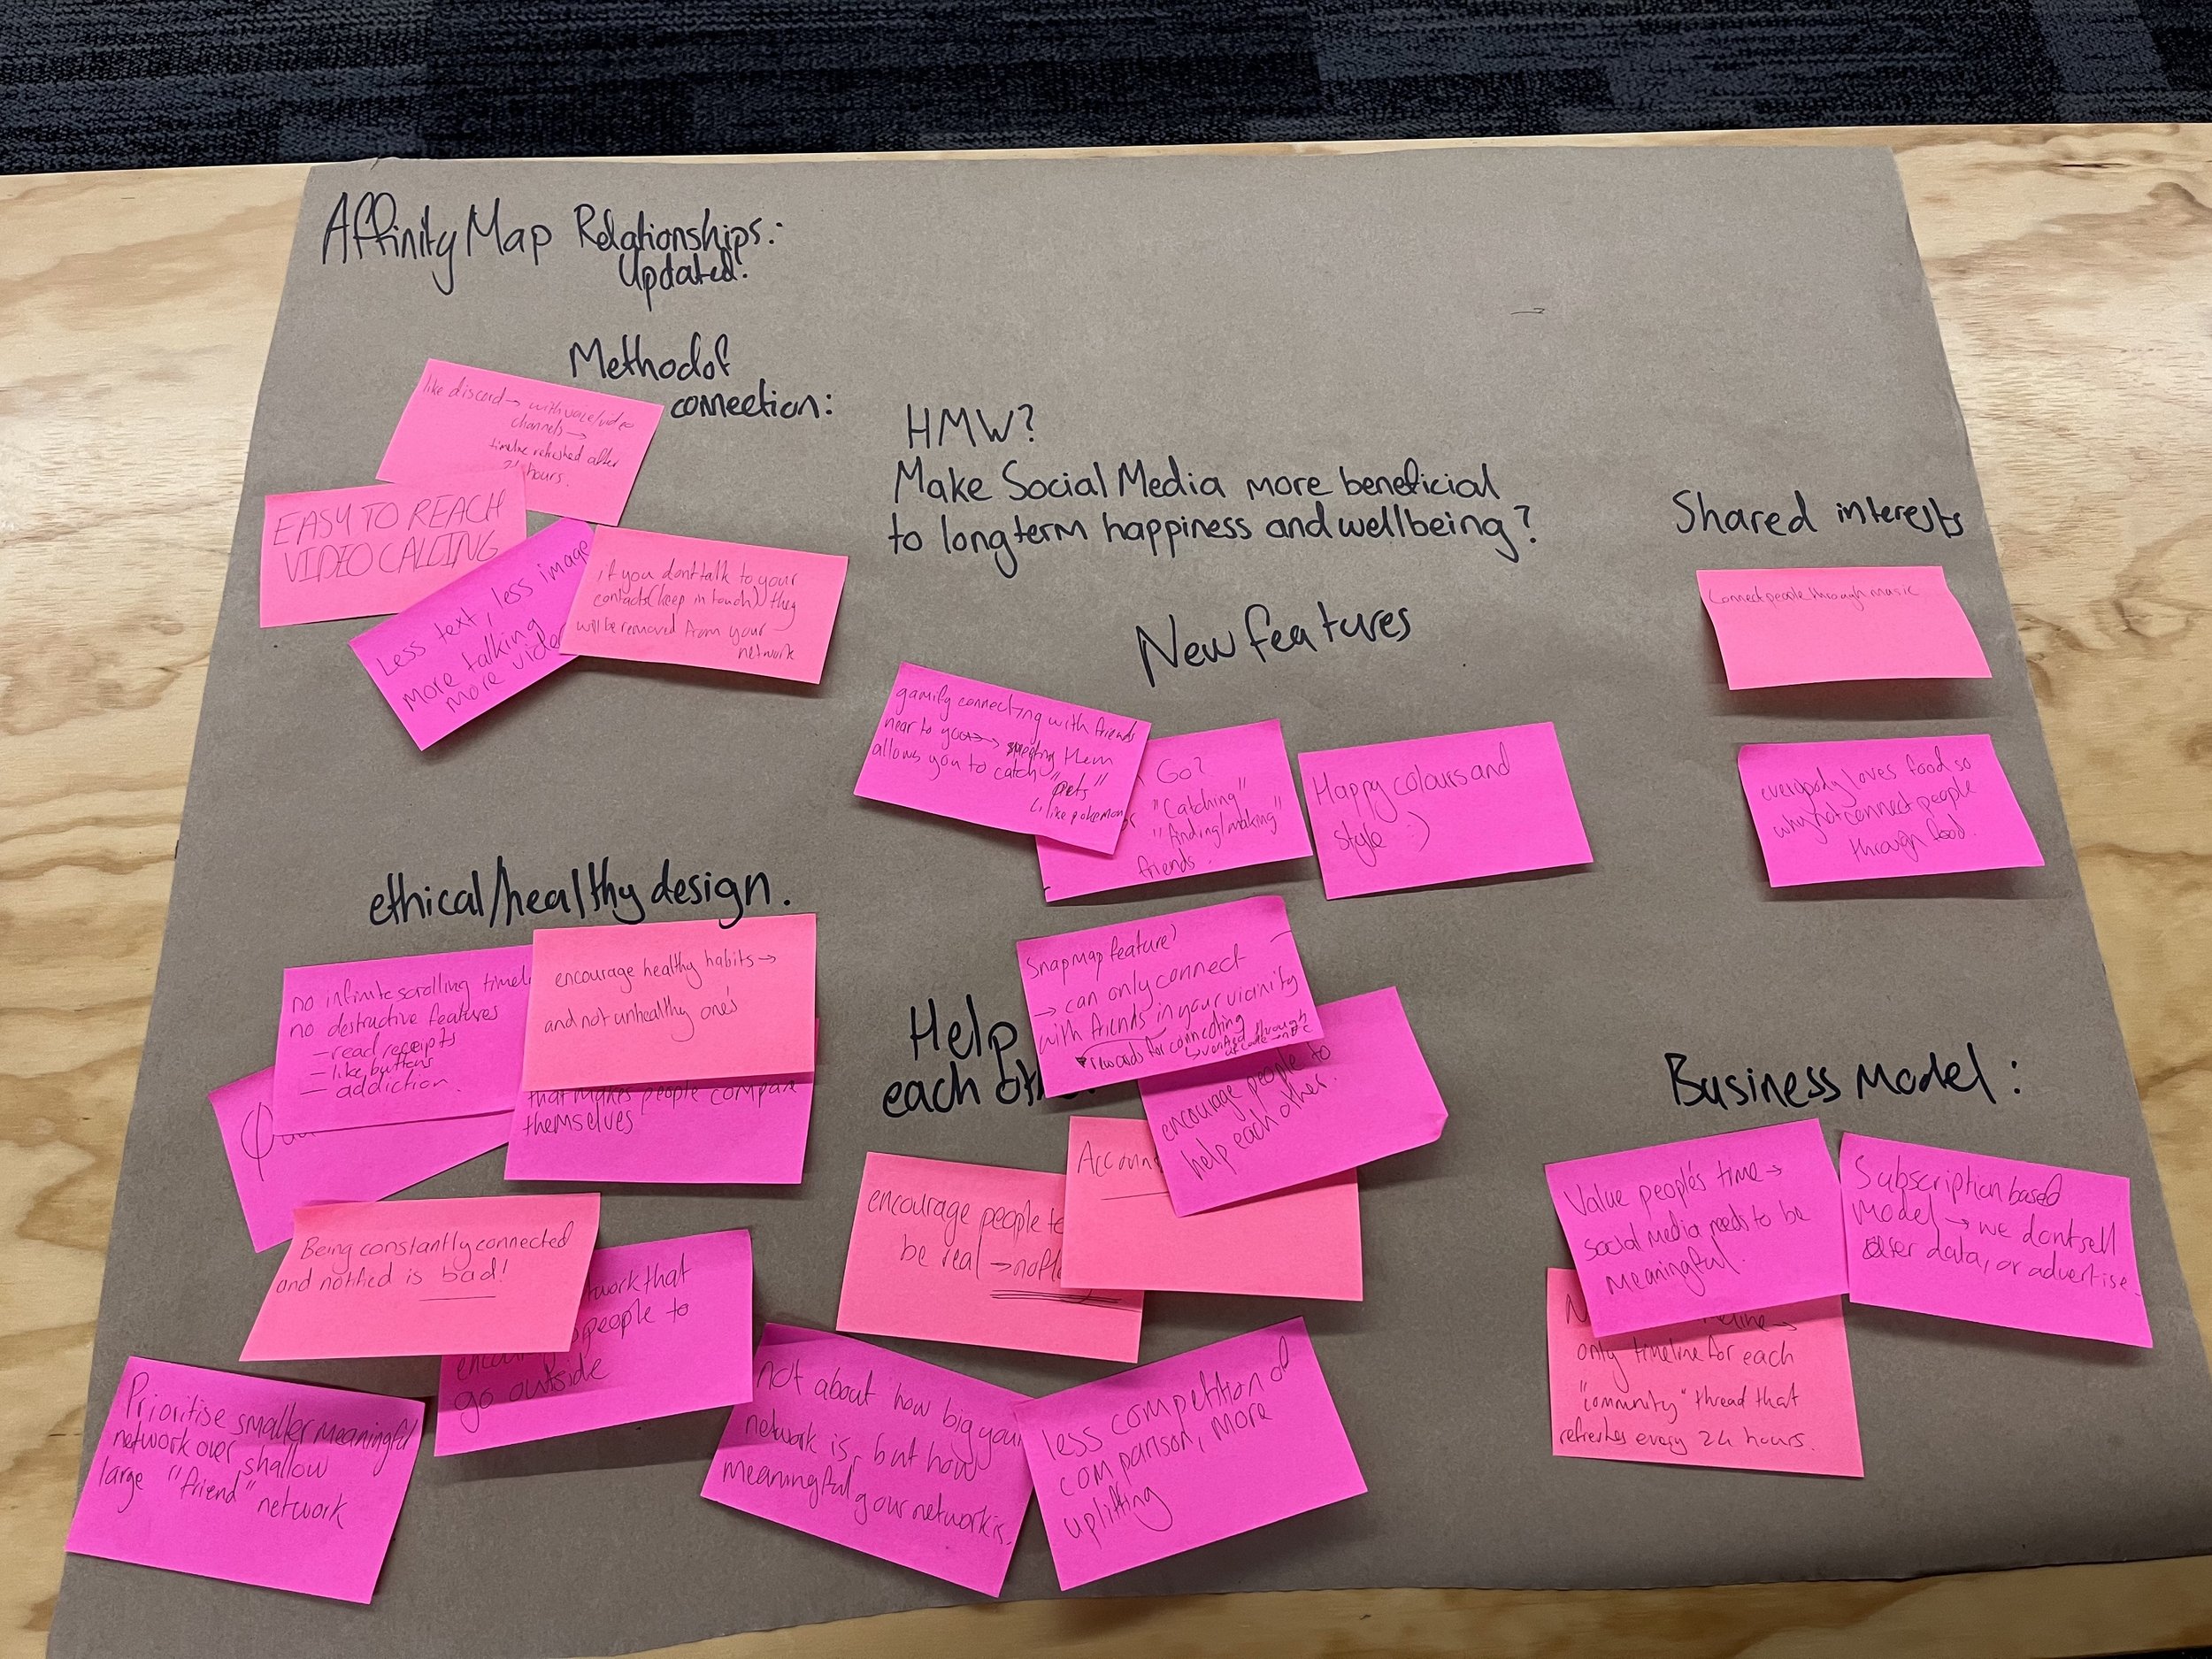 Affinity Map Relationships:
Updated:
Method of
connection:
like discord → with voice/video
channels →
timeline refreshed after
hours.
EASY TO REACH
VIDEO CALLING
Less text, less image
more talking
more video
if you dont talk to your
contacts (keep in touch) they
will be removed from your
network
HMW?
Make Social Media more beneficial
to long term happiness and wellbeing?
New features
gamify connecting with friends
near to you → meeting them
allows you to catch "pets"
↳ like pokemon
Go?
"Catching"
"finding/making"
friends.
Happy colours and
style :)
Snapmap feature?
→ can only connect
with friends in your vicinity
rewards for connecting
↳ verified through
Shared interests
Connect people through music
everybody loves food so
why not connect people
through food.
ethical/healthy design.
no infinite scrolling
no destructive features
– read receipts
– like buttons
– addiction.
encourage healthy habits →
and not unhealthy one's
that makes people compare
themselves
Being constantly connected
and notified is bad!
that
people to
go outside
Prioritise smaller meaningful
network over shallow
large "friend" network
Help
each
encourage people to
help each other.
encourage people to
be real →
not about how big your
network is, but how
meaningful your network is.
less competition and
comparison, more
uplifting
Business Model:
Value people's time →
social media needs to be
meaningful.
Subscription based
Model → we dont sell
user data, or advertise.
only timeline for each
"community" thread that
refreshes every 24 hours.